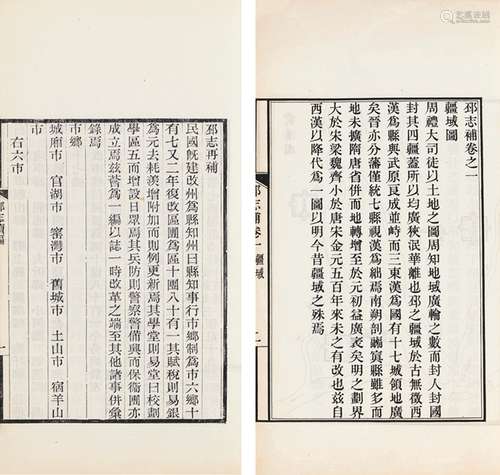 邳志補卷之一
疆域圖
周禮大司徒以土地之圖周知地域廣輪之數而封人封國
封其四疆蓋所以均廣狹泯華離也邳之疆域於古無徵西
漢為縣與武原良成並峙而三東漢為國有十七城領地廣
矣晉亦分藩僅統七縣視漢為絀焉南朔剖 寘縣雖多而
地未擴隋唐省併而地轉增至於元初益廣袤矣明之劃界
大於宋梁魏齊小於唐宋金元五百年來未之有改也茲自
西漢以降代為一圖以明今昔疆域之殊焉
邳志補 卷一 疆域
一
邳志再補
民國旣建改州為縣知州曰縣知事行市鄉制為市六鄉十
有七又二年復改區團為區十團八十有一其賦稅則易銀
為元去耗羨增附加而則例更新焉其學堂則易堂曰校劃
學區五而增設日眾焉其兵防則警察警備興而保衞團亦
成立焉茲營為一編以誌一時改革之端至其他諸事併彙
錄焉
市鄉
城廂市 官湖市 窰灣市 舊城市 土山市 宿羊山
市
右六市